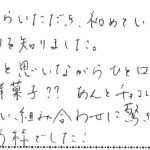 らいただき、初めてい
りを知りました。
と思いながらひと口
洋菓子?? あんとチョコ
い組み合わせに驚き
う様でした!